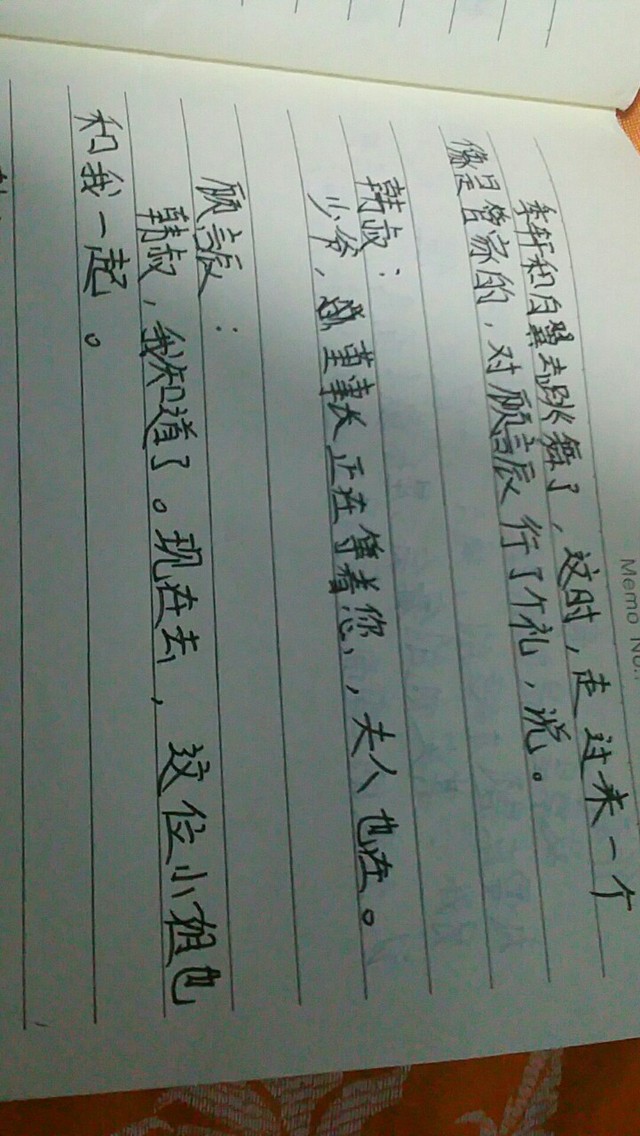 Memo No.:
季轩和白翼去跳舞了，这时，走过来一个
像是管家的，对顾言辰行了个礼，说。
韩叔：
少爷，董事长正在等着您，夫人也在。
顾言辰：
韩叔，我知道了。现在去，这位小姐也
和我一起。